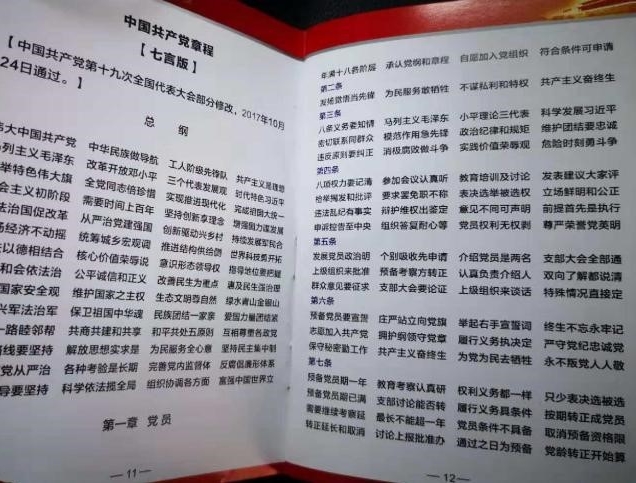 中国共产党章程
【七言版】
【中国共产党第十九次全国代表大会部分修改，2017年10月
24日通过。】
总 纲
伟大中国共产党 中华民族做导航 工人阶级先锋队 共产主义是理想
马列主义毛泽东 改革开放邓小平 三个代表发展观 时代特色习近平
高举特色伟大旗 全党同志倍珍惜 实现推进现代化 完成祖国大统一
主义初阶段 需要时间上百年 坚持创新享理念 增强国力谋发展
法治国促改革 从严治党建强国 创新驱动兴乡村 持续发展军民合
经济不动摇 统筹城乡宏观调 推进结构供给侧 世界科技勇开拓
以德相结合 核心价值荣辱说 意识形态领导权 指导地位要把握
和会依法治 公平诚信和正义 改善民生为重点 惠及民生强治理
国家安全观 维护国家之主权 生态文明尊自然 绿水青山金银山
兴军法治军 保卫祖国中华魂 民族团结一家亲 爱国力量团结紧
一路睦邻帮 共商共建和共享 和平共处五原则 互相尊重各政党
路线要坚持 解放思想实求是 为民服务全心意 坚持民主集中制
党从严治 各种考验是长期 完善党内监督体 反腐倡廉形体系
导要坚持 科学依法揽全局 组织协调各方面 富强中国世界立
第一章 党员
—11—
年满十八各阶层 承认党纲和章程 自愿加入党组织 符合条件可申请
第二条
发挥觉悟当先锋 为民服务敢牺牲 不谋私利和特权 共产主义奋终生
第三条
八条义务要知情 马列主义毛泽东 小平理论三代表 科学发展习近平
密切联系同群众 模范作用急先锋 政治纪律和规矩 维护团结要忠诚
违反原则要纠正 消极腐败做斗争 实践价值荣辱观 危险时刻勇斗争
第四条
八项权力要记清 参加会议认真听 教育培训及讨论 发表建议大家评
检举揭发和批评 要求罢免职不称 表决选举被选权 立场鲜明和公正
违法乱纪有事实 辩护维权出鉴定 意见不同可声明 前提首先是执行
申诉控告至中央 组织答复耐心等 党员权利无权剥 尊严荣誉党英明
第五条
发展党员政治明 个别吸收先申请 介绍党员是两名 支部大会全部通
上级组织来批准 预备考察方转正 认真负责介绍人 双向了解都说清
群众意见要征求 支部大会要论证 上级组织来谈话 特殊情况直接定
第六条
预备党员要宣誓 庄严站立向党旗 举起右手宣誓词 终生不忘永牢记
志愿加入共产党 拥护纲领守党章 履行义务执决定 严守党纪忠诚党
保守秘密勤工作 共产主义奋终生 为党为民去牺牲 永不叛党人人敬
第七条
预备党员期一年 教育考察认真研 权利义务都一样 只少表决选被选
预备党员期已满 支部讨论能否转 履行义务具条件 按期转正成党员
需要继续考察延 最长不能超一年 党员条件不具备 取消预备资格限
转正延长和取消 讨论上报批准办 通过之日为预备 党龄转正开始算
—12—